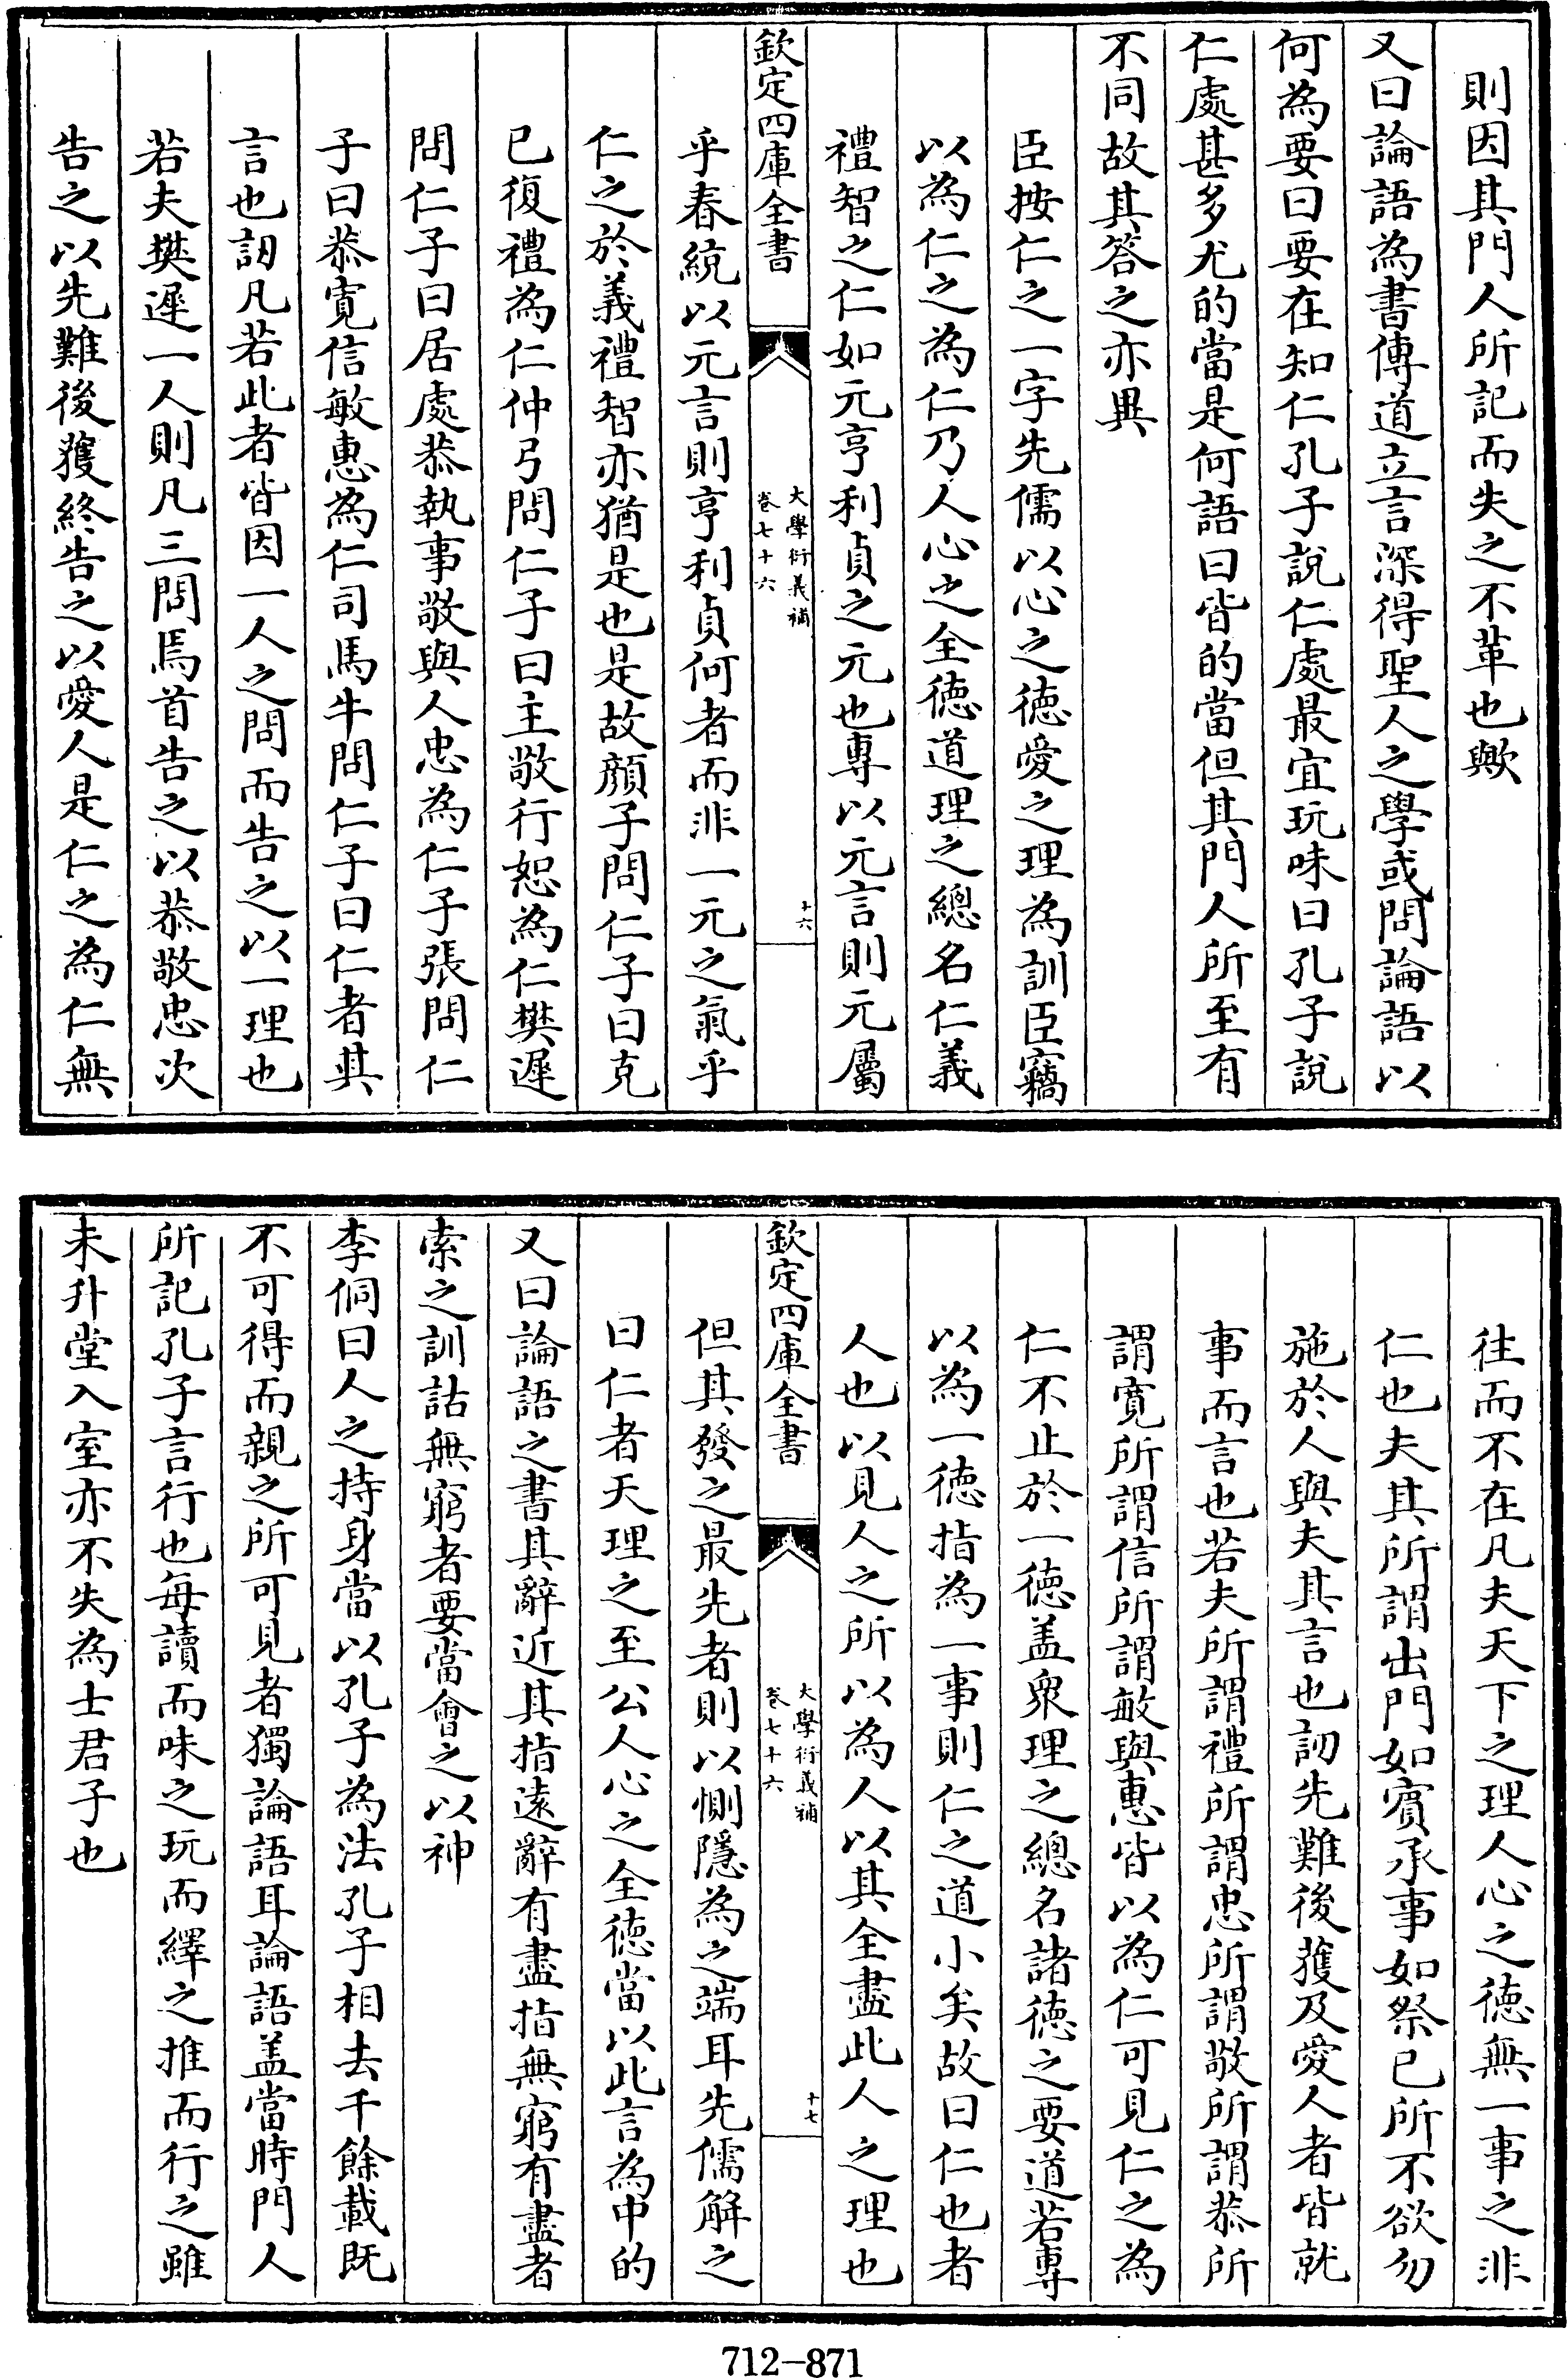 則因其門人所記而失之不革也歟
又曰論語為書傳道立言深得聖人之學或問論語以
何為要曰要在知仁孔子說仁處最宜玩味曰孔子說
仁處甚多尤的當是何語曰皆的當但其門人所至有
不同故其答之亦異
臣按仁之一字先儒以心之徳愛之理為訓臣竊
以為仁之為仁乃人心之全徳道理之總名仁義
禮智之仁如元亨利貞之元也專以元言則元屬
欽定四庫全書
大學衍義補
卷七十六
十六
乎春統以元言則亨利貞何者而非一元之氣乎
仁之於義禮智亦猶是也是故顏子問仁子曰克
已復禮為仁仲弓問仁子曰主敬行恕為仁樊遲
問仁子曰居處恭執事敬與人忠為仁子張問仁
子曰恭寛信敏惠為仁司馬牛問仁子曰仁者其
言也訒凡若此者皆因一人之問而告之以一理也
若夫樊遲一人則凡三問焉首告之以恭敬忠次
告之以先難後獲終告之以愛人是仁之為仁無
往而不在凡夫天下之理人心之徳無一事之非
仁也夫其所謂出門如賓承事如祭已所不欲勿
施於人與夫其言也訒先難後獲及愛人者皆就
事而言也若夫所謂禮所謂忠所謂敬所謂恭所
謂寛所謂信所謂敏與惠皆以為仁可見仁之為
仁不止於一徳盖衆理之總名諸徳之要道若專
以為一徳指為一事則仁之道小矣故曰仁也者
人也以見人之所以為人以其全盡此人之理也
欽定四庫全書
大學衍義補
卷七十六
十七
但其發之最先者則以惻隱為之端耳先儒解之
曰仁者天理之至公人心之全徳當以此言為中的
又曰論語之書其辭近其指遠辭有盡指無窮有盡者
索之訓詁無窮者要當會之以神
李侗曰人之持身當以孔子為法孔子相去千餘載既
不可得而親之所可見者獨論語耳論語盖當時門人
所記孔子言行也每讀而味之玩而繹之推而行之雖
未升堂入室亦不失為士君子也
712-871